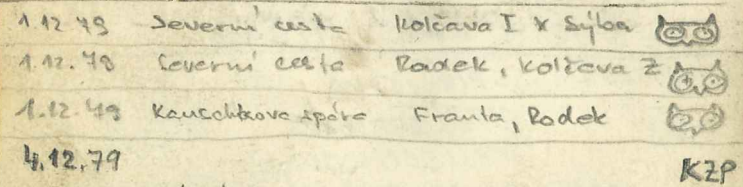 1.12 79 Severní cesta Kolčava I & Sýba
1.12.79 Severní cesta Radek, Kolčava Z
1.12.79 Kauschkova spára Franta, Radek
4.12.79 KZP